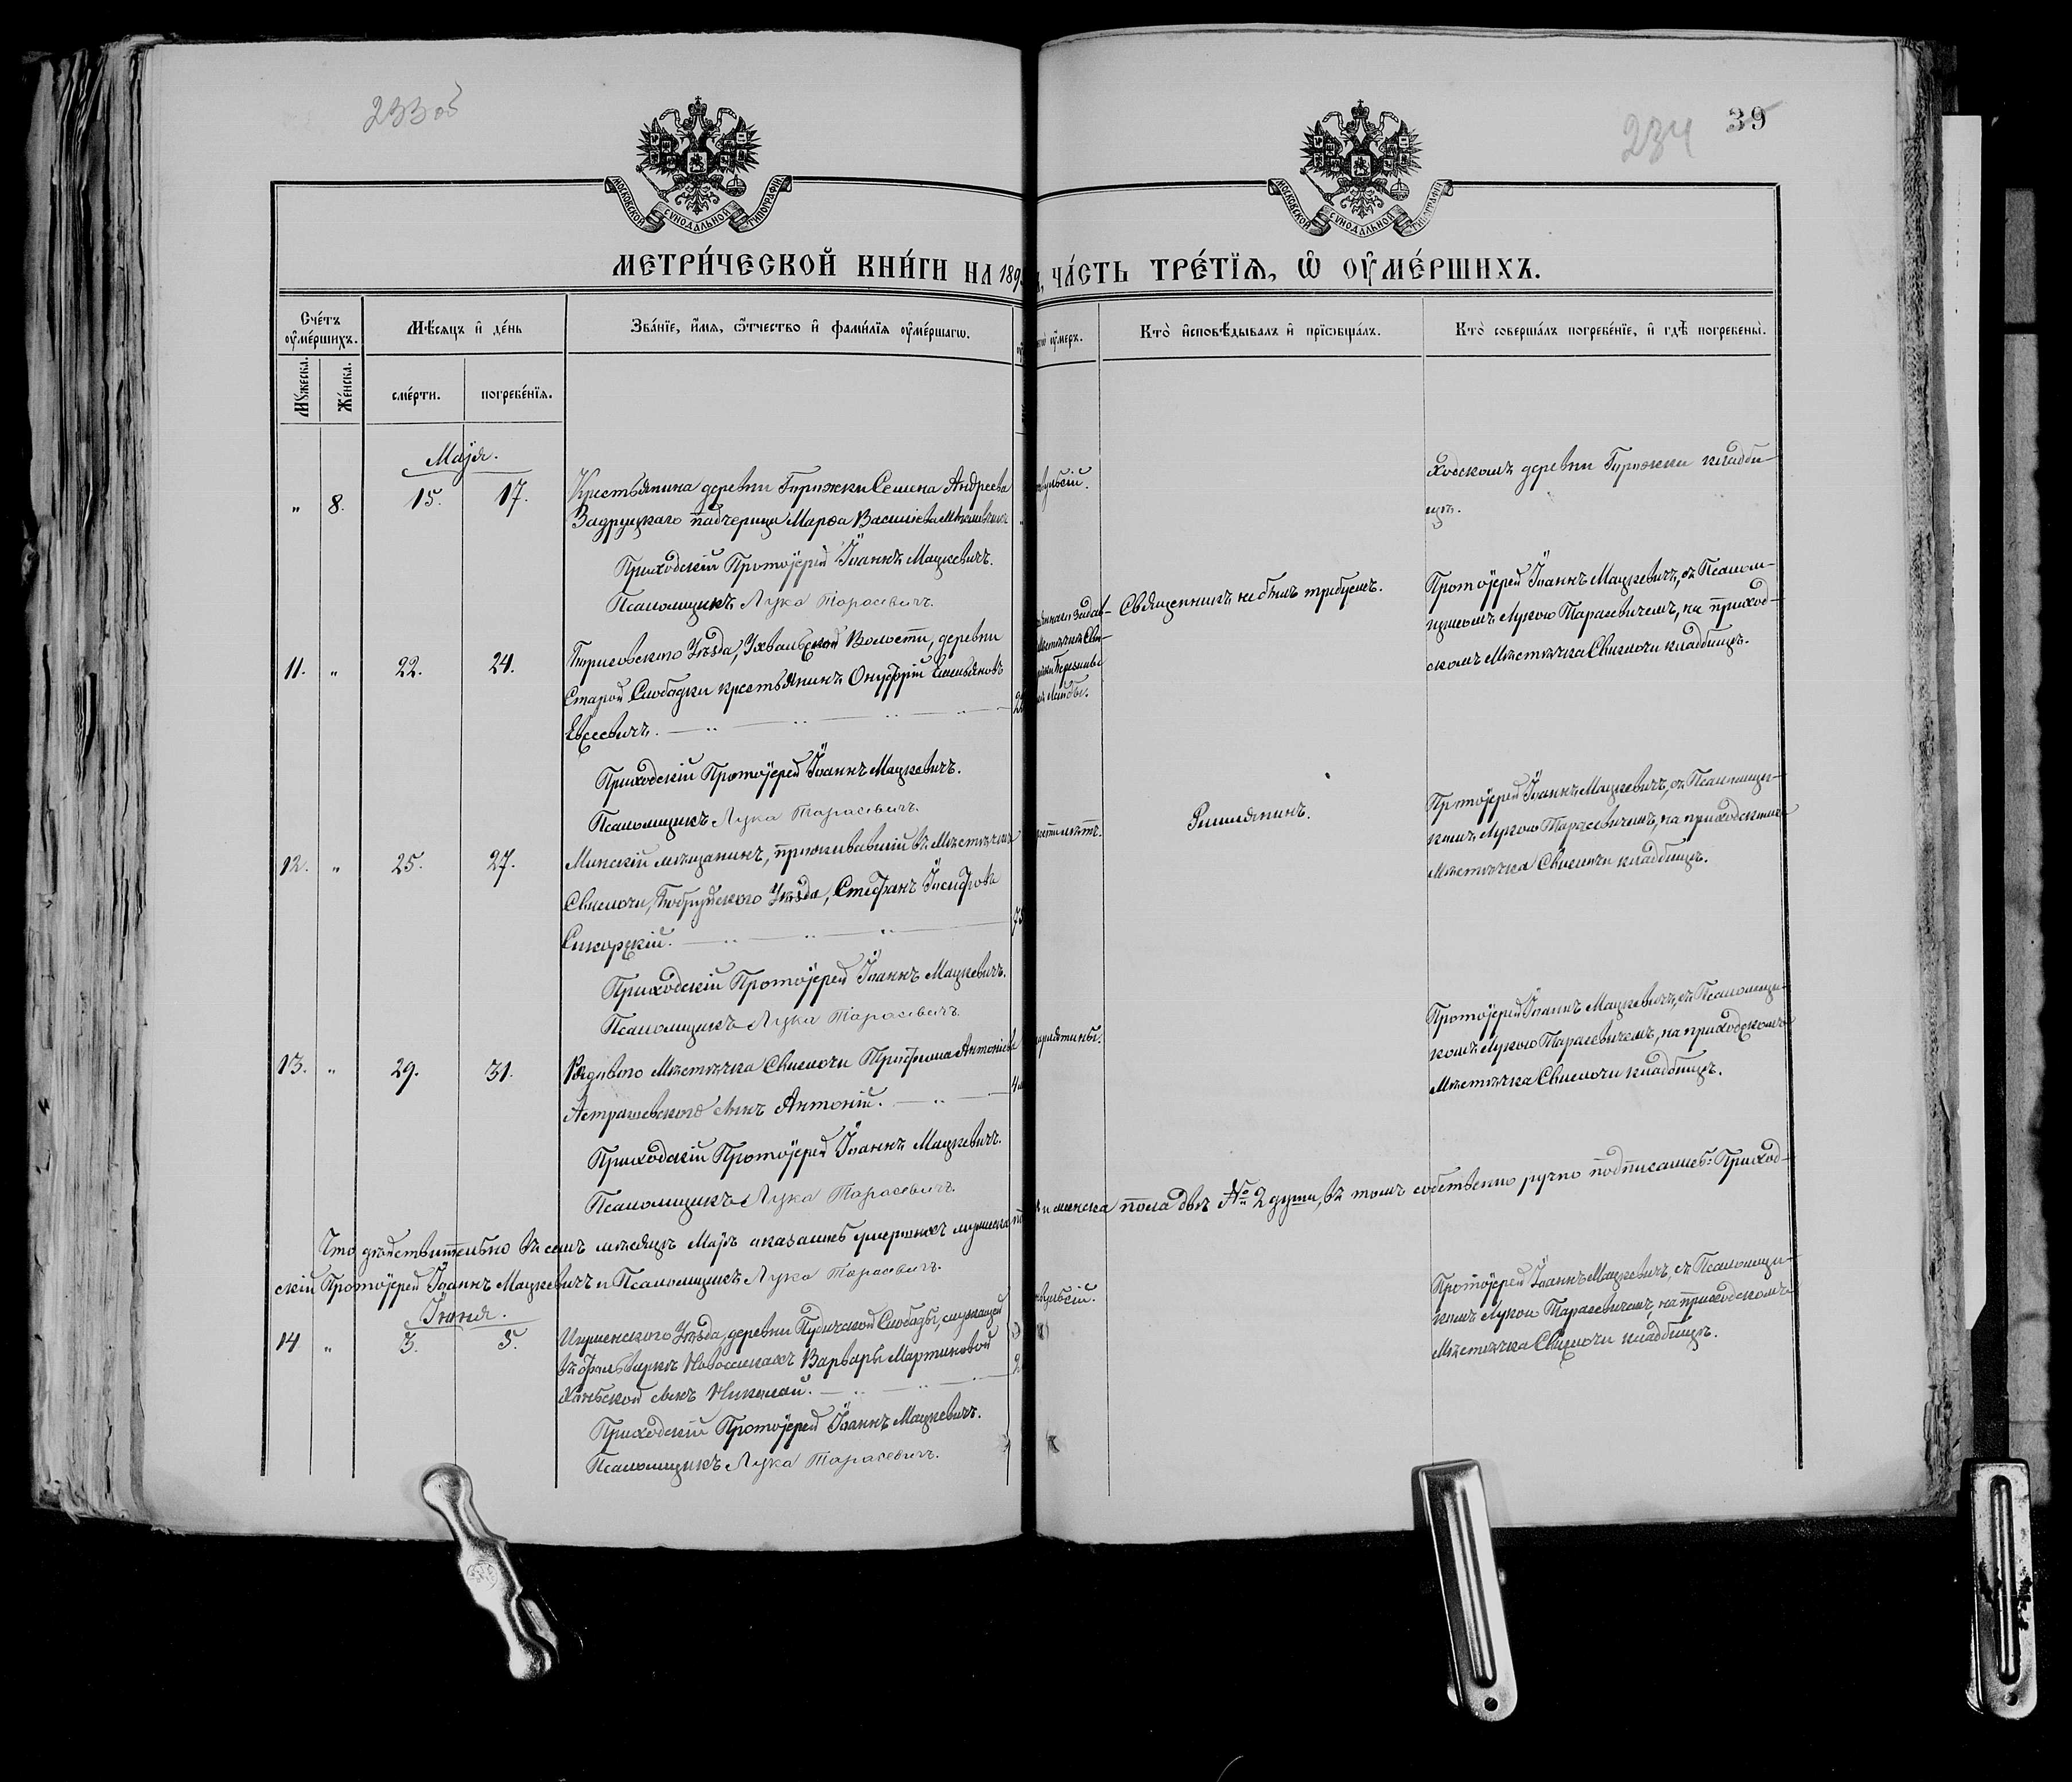 233 об
234
39
МОСКОВСКОЙ СѴНОДАЛЬНОЙ ТИПОГРАФІИ
МОСКОВСКОЙ СѴНОДАЛЬНОЙ ТИПОГРАФІИ
МЕТРИ́ЧЕСКОЙ КНИ́ГИ НА 189
ЧА́СТЬ ТРЕ́ТІѦ, Ѡ ОУ҆МЕ́РШИХЪ.
Сче́тъ оу҆ме́ршихъ.
Мꙋ́жеска.
Же́нска.
Мѣ́сяцъ и҆ де́нь
сме́рти.
погребе́нїѧ.
Зва́нїе, и҆́мѧ, ѻ҆́тчество и҆ фами́лїѧ оу҆ме́ршагѡ.
оу҆́меръ.
Кто̀ и҆сповѣ́дывалъ и҆ прїѻбща́лъ.
Кто̀ соверша́лъ погребе́нїе, и҆ гдѣ̀ погребены̀.
Маія.
„ 8. 15. 17.
Крестьянина деревни Гирижки Семена Андреева
Задруцкаго падчерица Марѳа Василіева
Приходскій Протоіерей Іоаннъ Мацкевичъ.
Псаломщикъ Лука Тарасевичъ.
ходскомъ деревни Гирижки кладби-
щѣ.
11. „ 22. 24.
Уѣзда, Ухвальской Волости, деревни
Старой Слободки крестьянинъ Онуфрій Емельяновъ
Евсеевичъ.
Приходскій Протоіерей Іоаннъ Мацкевичъ.
Псаломщикъ Лука Тарасевичъ.
Священникъ не былъ требуемъ.
Протоіерей Іоаннъ Мацкевичъ, съ Псалом-
щикомъ Лукою Тарасевичемъ, на приход-
скомъ Мѣстечка Свислочи кладбищѣ.
12. „ 25. 27.
Минскій мѣщанинъ, проживавшій въ Мѣстечкѣ
Свислочи, Бобруйскаго Уѣзда, Стефанъ Іосифовъ
Сикорскій.
75
Приходскій Протоіерей Іоаннъ Мацкевичъ.
Псаломщикъ Лука Тарасевичъ.
Протоіерей Іоаннъ Мацкевичъ, съ Псаломщи-
комъ Лукою Тарасевичемъ, на приходскомъ
Мѣстечка Свислочи кладбищѣ.
13. „ 29. 31.
Рядового Мѣстечка Свислочи Трофима Антоніева
Астрашевскаго сынъ Антоній.
Приходскій Протоіерей Іоаннъ Мацкевичъ.
Псаломщикъ Лука Тарасевичъ.
Протоіерей Іоаннъ Мацкевичъ, съ Псаломщи-
комъ Лукою Тарасевичемъ, на приходскомъ
Мѣстечка Свислочи кладбищѣ.
Что дѣйствительно въ семъ мѣсяцѣ Маѣ оказалось умершихъ мужеска
и женска пола двѣ № 2 души, въ томъ собственно ручно подписались: Приход-
скій Протоіерей Іоаннъ Мацкевичъ и Псаломщикъ Лука Тарасевичъ.
Іюня.
14 „ 3. 5.
Игуменскаго Уѣзда, деревни Слободы, служащей
въ фольваркѣ Новоселкахъ Варвары Мартиновой
сынъ Николай.
Приходскій Протоіерей Іоаннъ Мацкевичъ.
Псаломщикъ Лука Тарасевичъ.
Протоіерей Іоаннъ Мацкевичъ, съ Псаломщи-
комъ Лукою Тарасевичемъ, на приходскомъ
Мѣстечка Свислочи кладбищѣ.